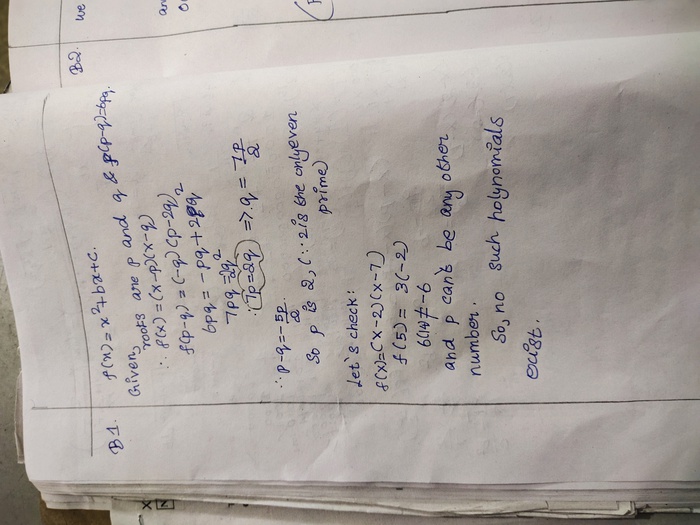 B1.
f(x) = x²+bx+c.
Given,
roots are p and q & f(p-q)=6pq.
∴ f(x) = (x-p)(x-q)
f(p-q) = (-q)(p-2q)
6pq = -pq + 2q²
7pq = 2q²
∴ 7p=2q ⇒ q = 7p/2
∴ p-q = -5p/2.
So p is 2, (∵ 2 is the only even
prime)
Let's check:
f(x)=(x-2)(x-7)
f(5) = 3(-2)
6(14) ≠ -6
and p can't be any other
number.
So, no such polynomials
exist.
B2.
we